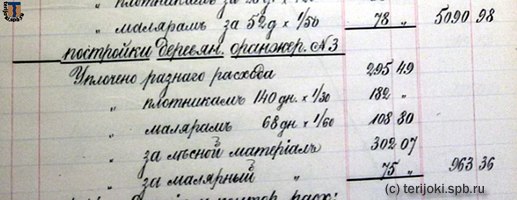 " плотникамъ за
" малярамъ за 52 д х 1/50 78 " 5090 98
постройки деревян. оранжер. №3
Уплочено разнаго расхода 295 49
" плотникамъ 140 дн. х 1/30 182 "
" малярамъ 68 дн х 1/60 108 80
" за лѣсной матеріалъ 302 07
" за малярный " 75 " 963 36
расх:
(c) terijoki.spb.ru